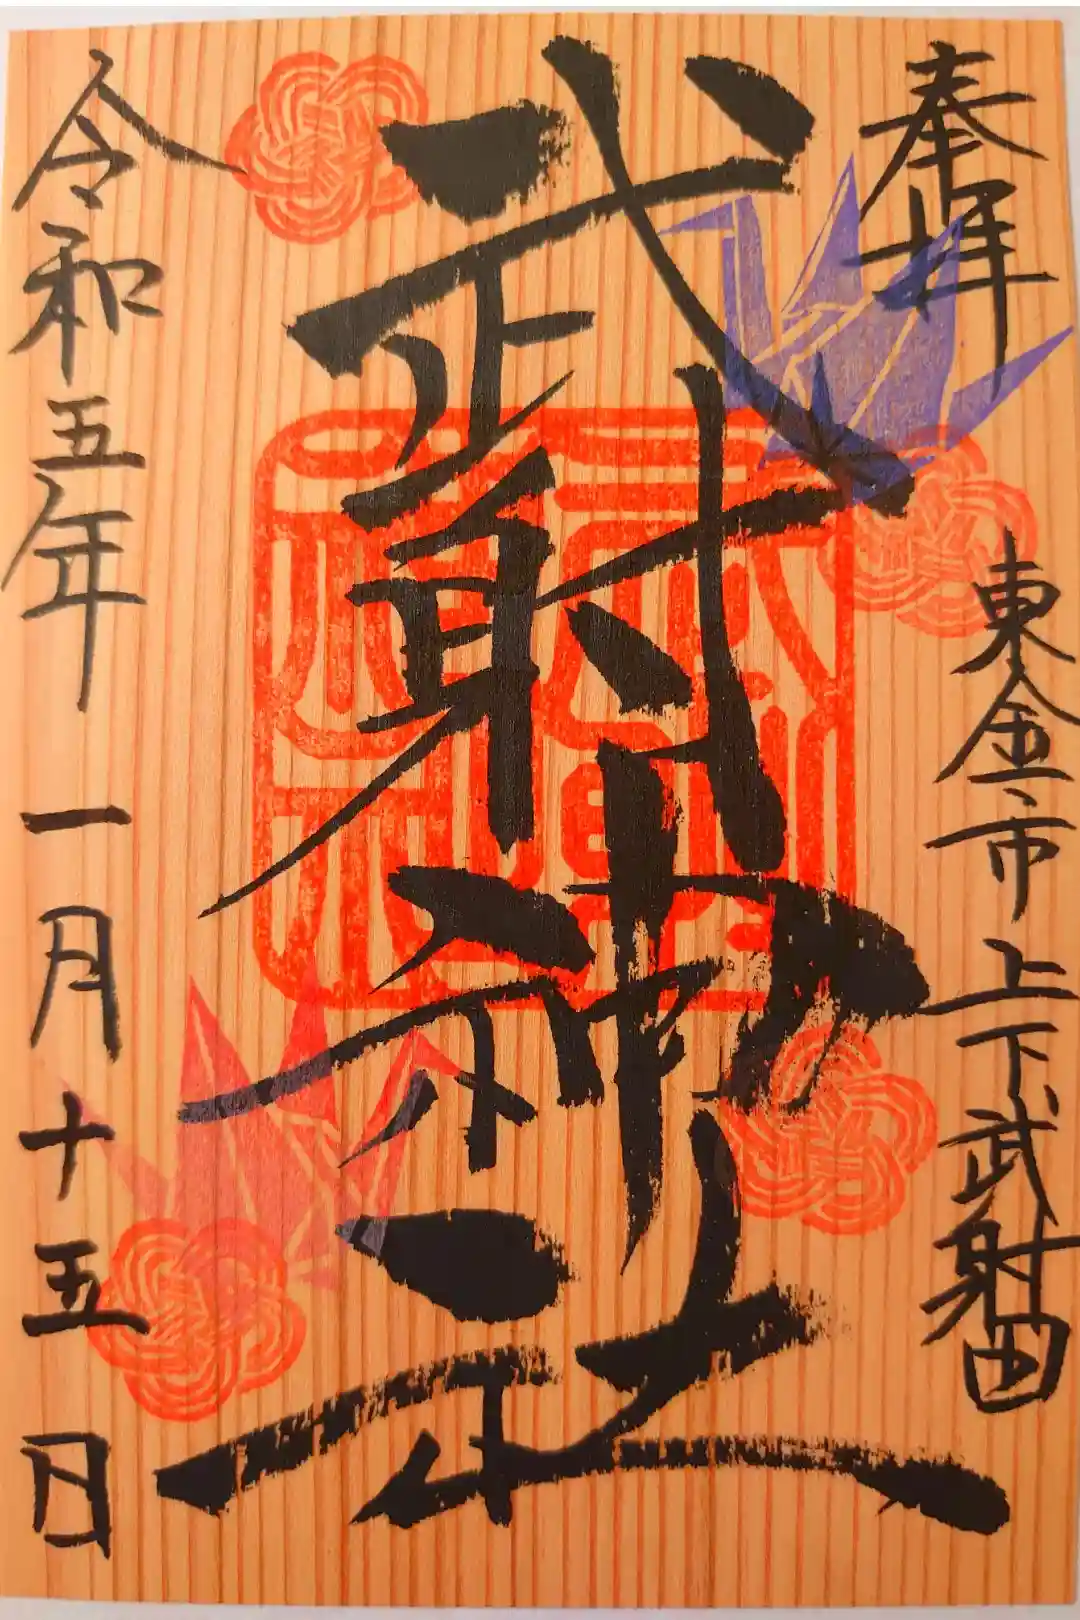 奉拝
東金市上下武射田
武射神社
令和五年 一月十五日